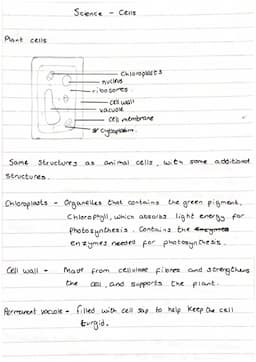 Science - Cells
Plant cells
Chloroplasts
nucleus
ribosomes
cell wall
vacuole
cell membrane
cytoplasm.
Same structures as animal cells, with some additional
structures.
Chloroplasts - Organelles that contains the green pigment,
Chlorophyll, which absorbs light energy for
photosynthesis. Contains the enzymes
enzymes needed for photosynthesis.
Cell wall - Made from cellulose fibres and strengthens
the cell, and supports the plant.
Permanent vacuole - filled with cell sap to help keep the cell
turgid.